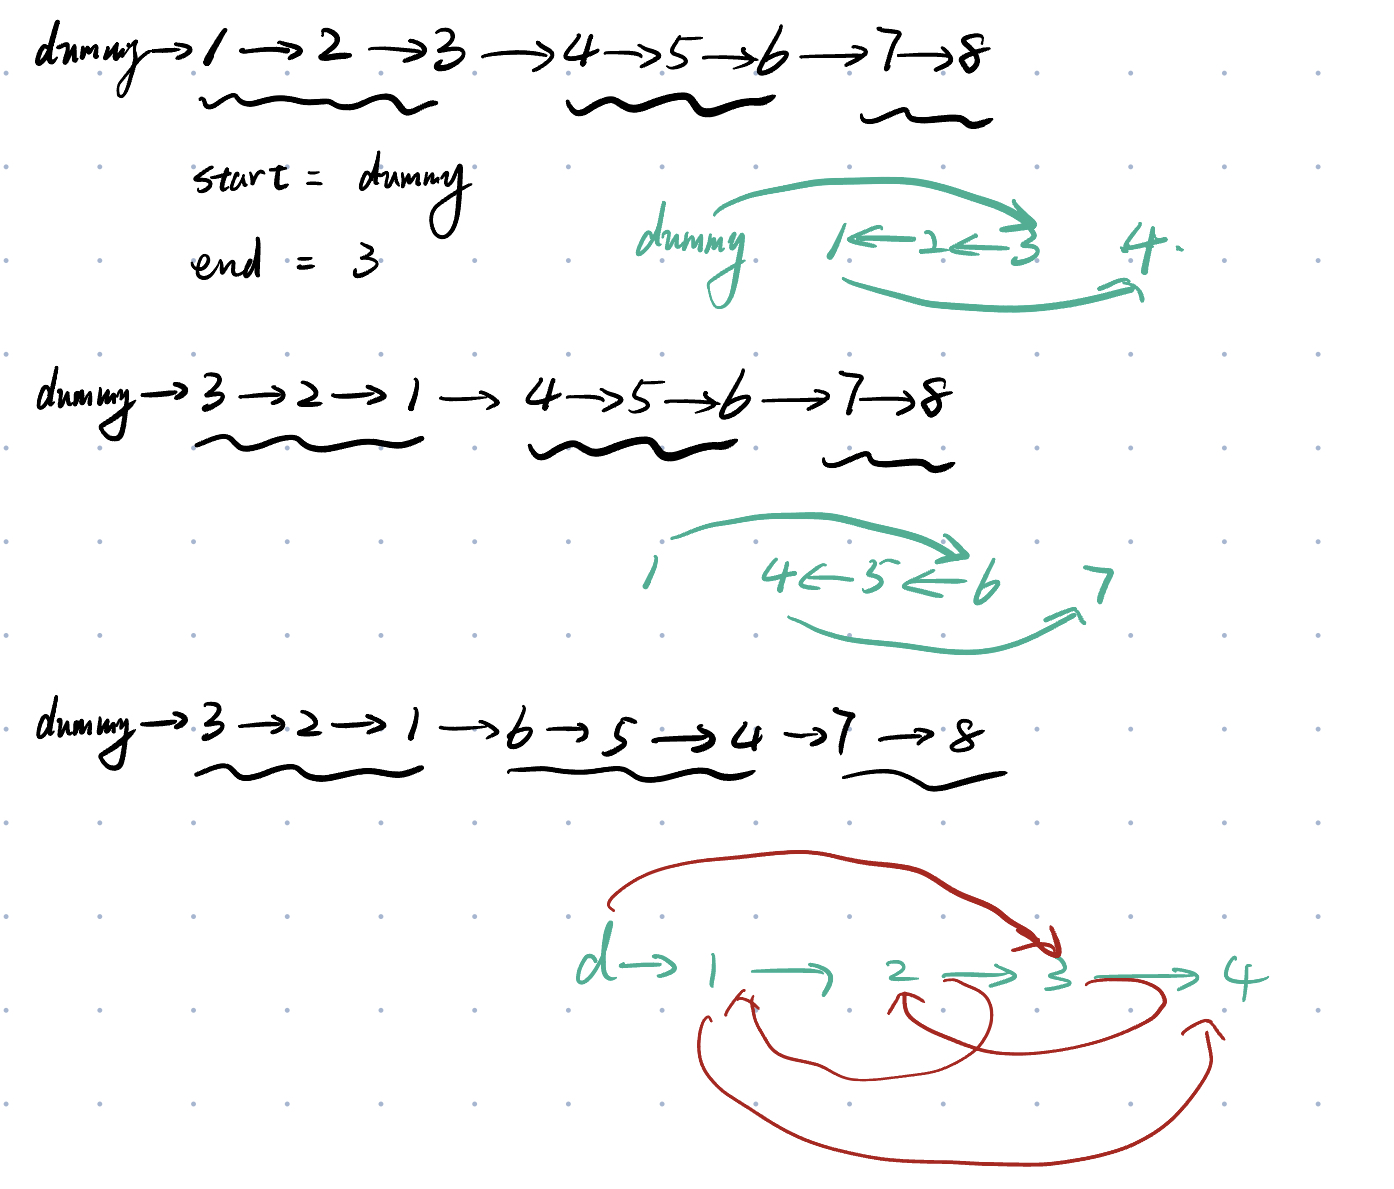 dummy→1→2→3→4→5→6→7→8
start = dummy
end = 3
dummy 1←2←3 4.
dummy→3→2→1→4→5→6→7→8
1 4←5←6 7
dummy→3→2→1→6→5→4→7→8
d→1→2→3→4